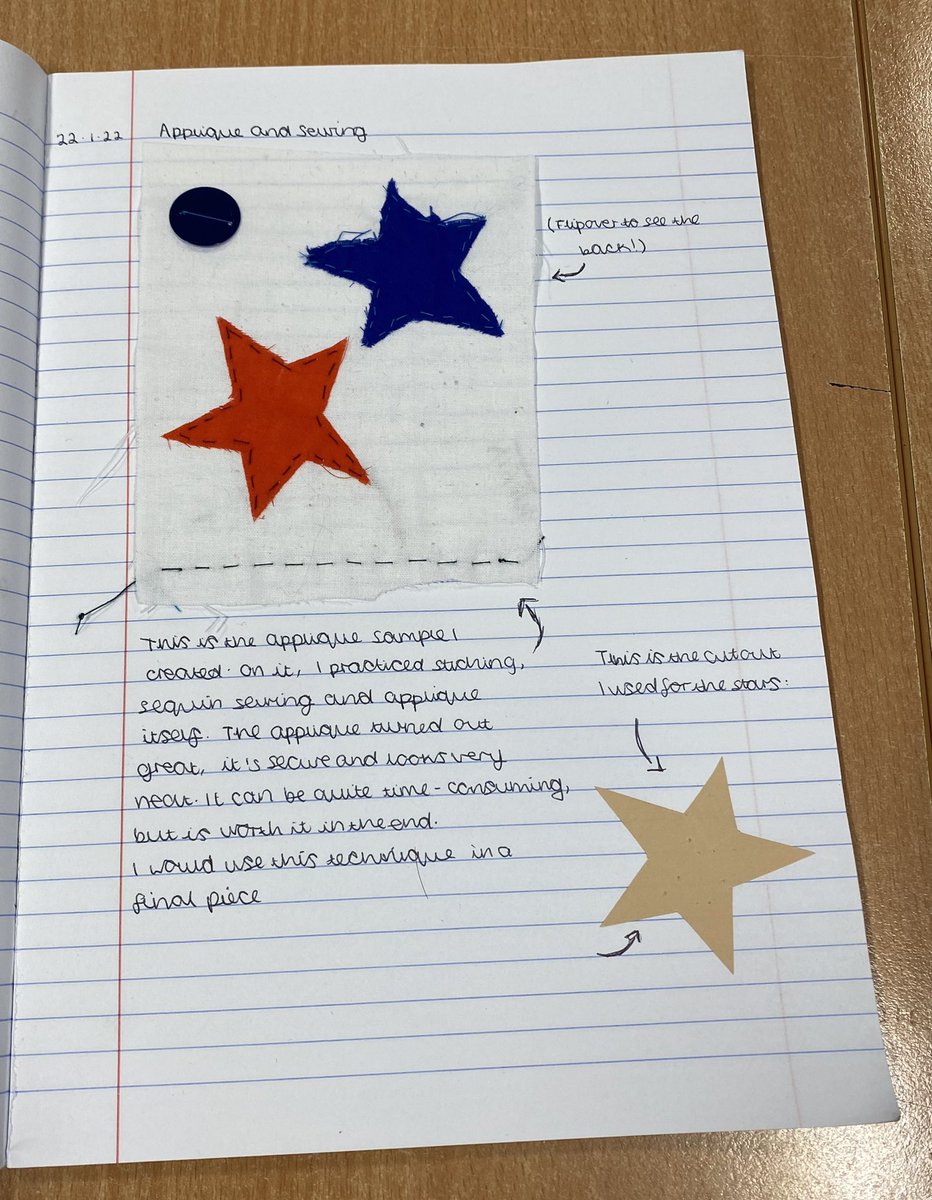 22.1.22 Applique and sewing
(Flip over to see the
back!)
This is the applique sample I
created. On it, I practiced stiching,
sequin sewing and applique
itself. The applique turned out
great, it's secure and looks very
neat. It can be quite time-consuming,
but is worth it in the end.
I would use this technique in a
final piece
This is the cutout
I used for the stars: